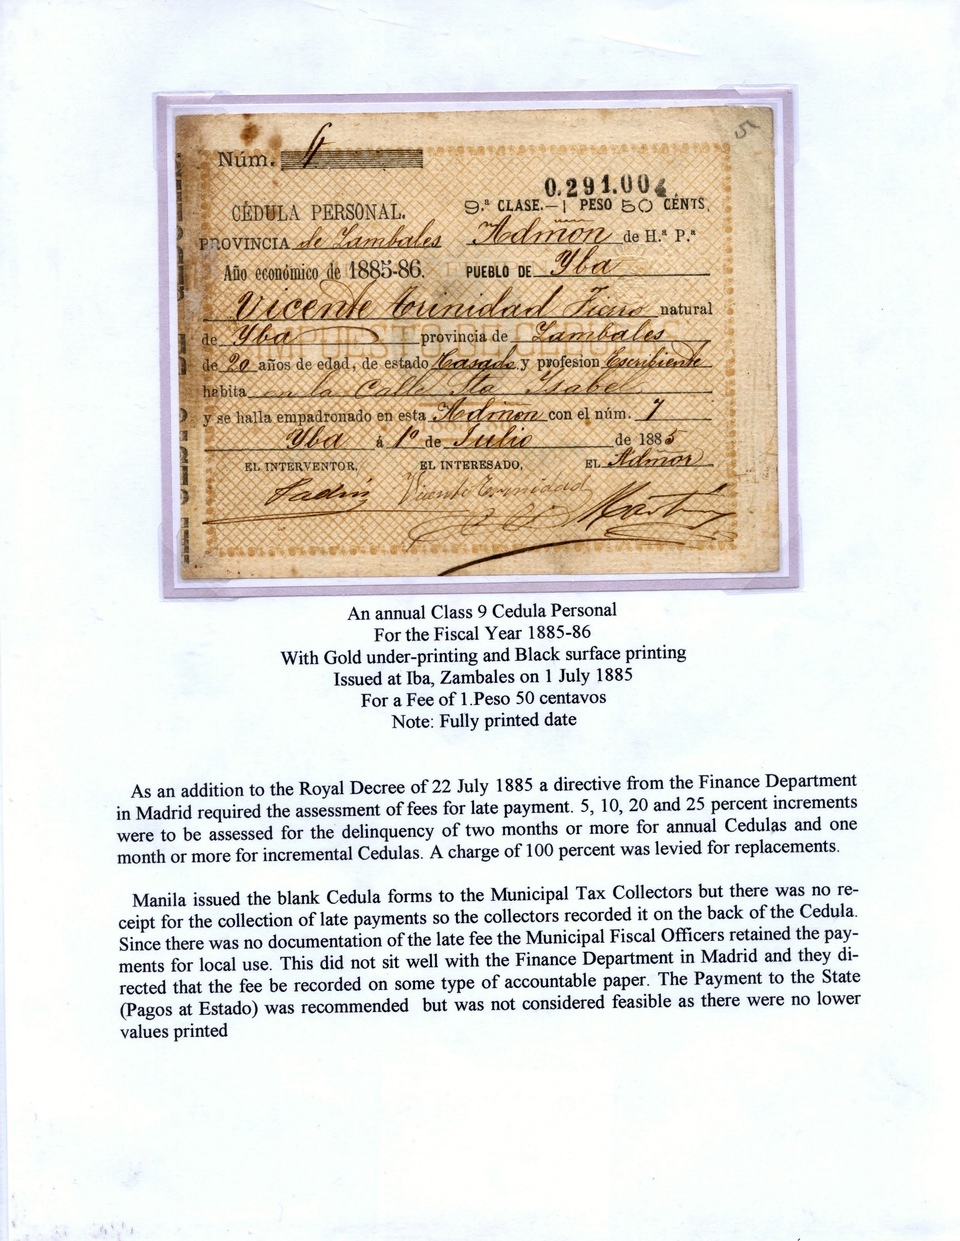 5
Núm. 4
0.291.004
9.ª CLASE.—1 PESO 50 CENTS.
CÉDULA PERSONAL.
PROVINCIA de Zambales Admōn de H.ª P.ª
Año económico de 1885-86. PUEBLO DE Yba
Vicente Trinidad natural
de Yba provincia de Zambales
de 20 años de edad, de estado Casado y profesion Escribiente
habita en la Calle Sta Ysabel
y se halla empadronado en esta Admōn con el núm. 7
Yba á 1º de Julio de 1885
EL INTERVENTOR, EL INTERESADO, EL Admōr
Vicente Trinidad
An annual Class 9 Cedula Personal
For the Fiscal Year 1885-86
With Gold under-printing and Black surface printing
Issued at Iba, Zambales on 1 July 1885
For a Fee of 1.Peso 50 centavos
Note: Fully printed date
As an addition to the Royal Decree of 22 July 1885 a directive from the Finance Department
in Madrid required the assessment of fees for late payment. 5, 10, 20 and 25 percent increments
were to be assessed for the delinquency of two months or more for annual Cedulas and one
month or more for incremental Cedulas. A charge of 100 percent was levied for replacements.
Manila issued the blank Cedula forms to the Municipal Tax Collectors but there was no re-
ceipt for the collection of late payments so the collectors recorded it on the back of the Cedula.
Since there was no documentation of the late fee the Municipal Fiscal Officers retained the pay-
ments for local use. This did not sit well with the Finance Department in Madrid and they di-
rected that the fee be recorded on some type of accountable paper. The Payment to the State
(Pagos at Estado) was recommended but was not considered feasible as there were no lower
values printed